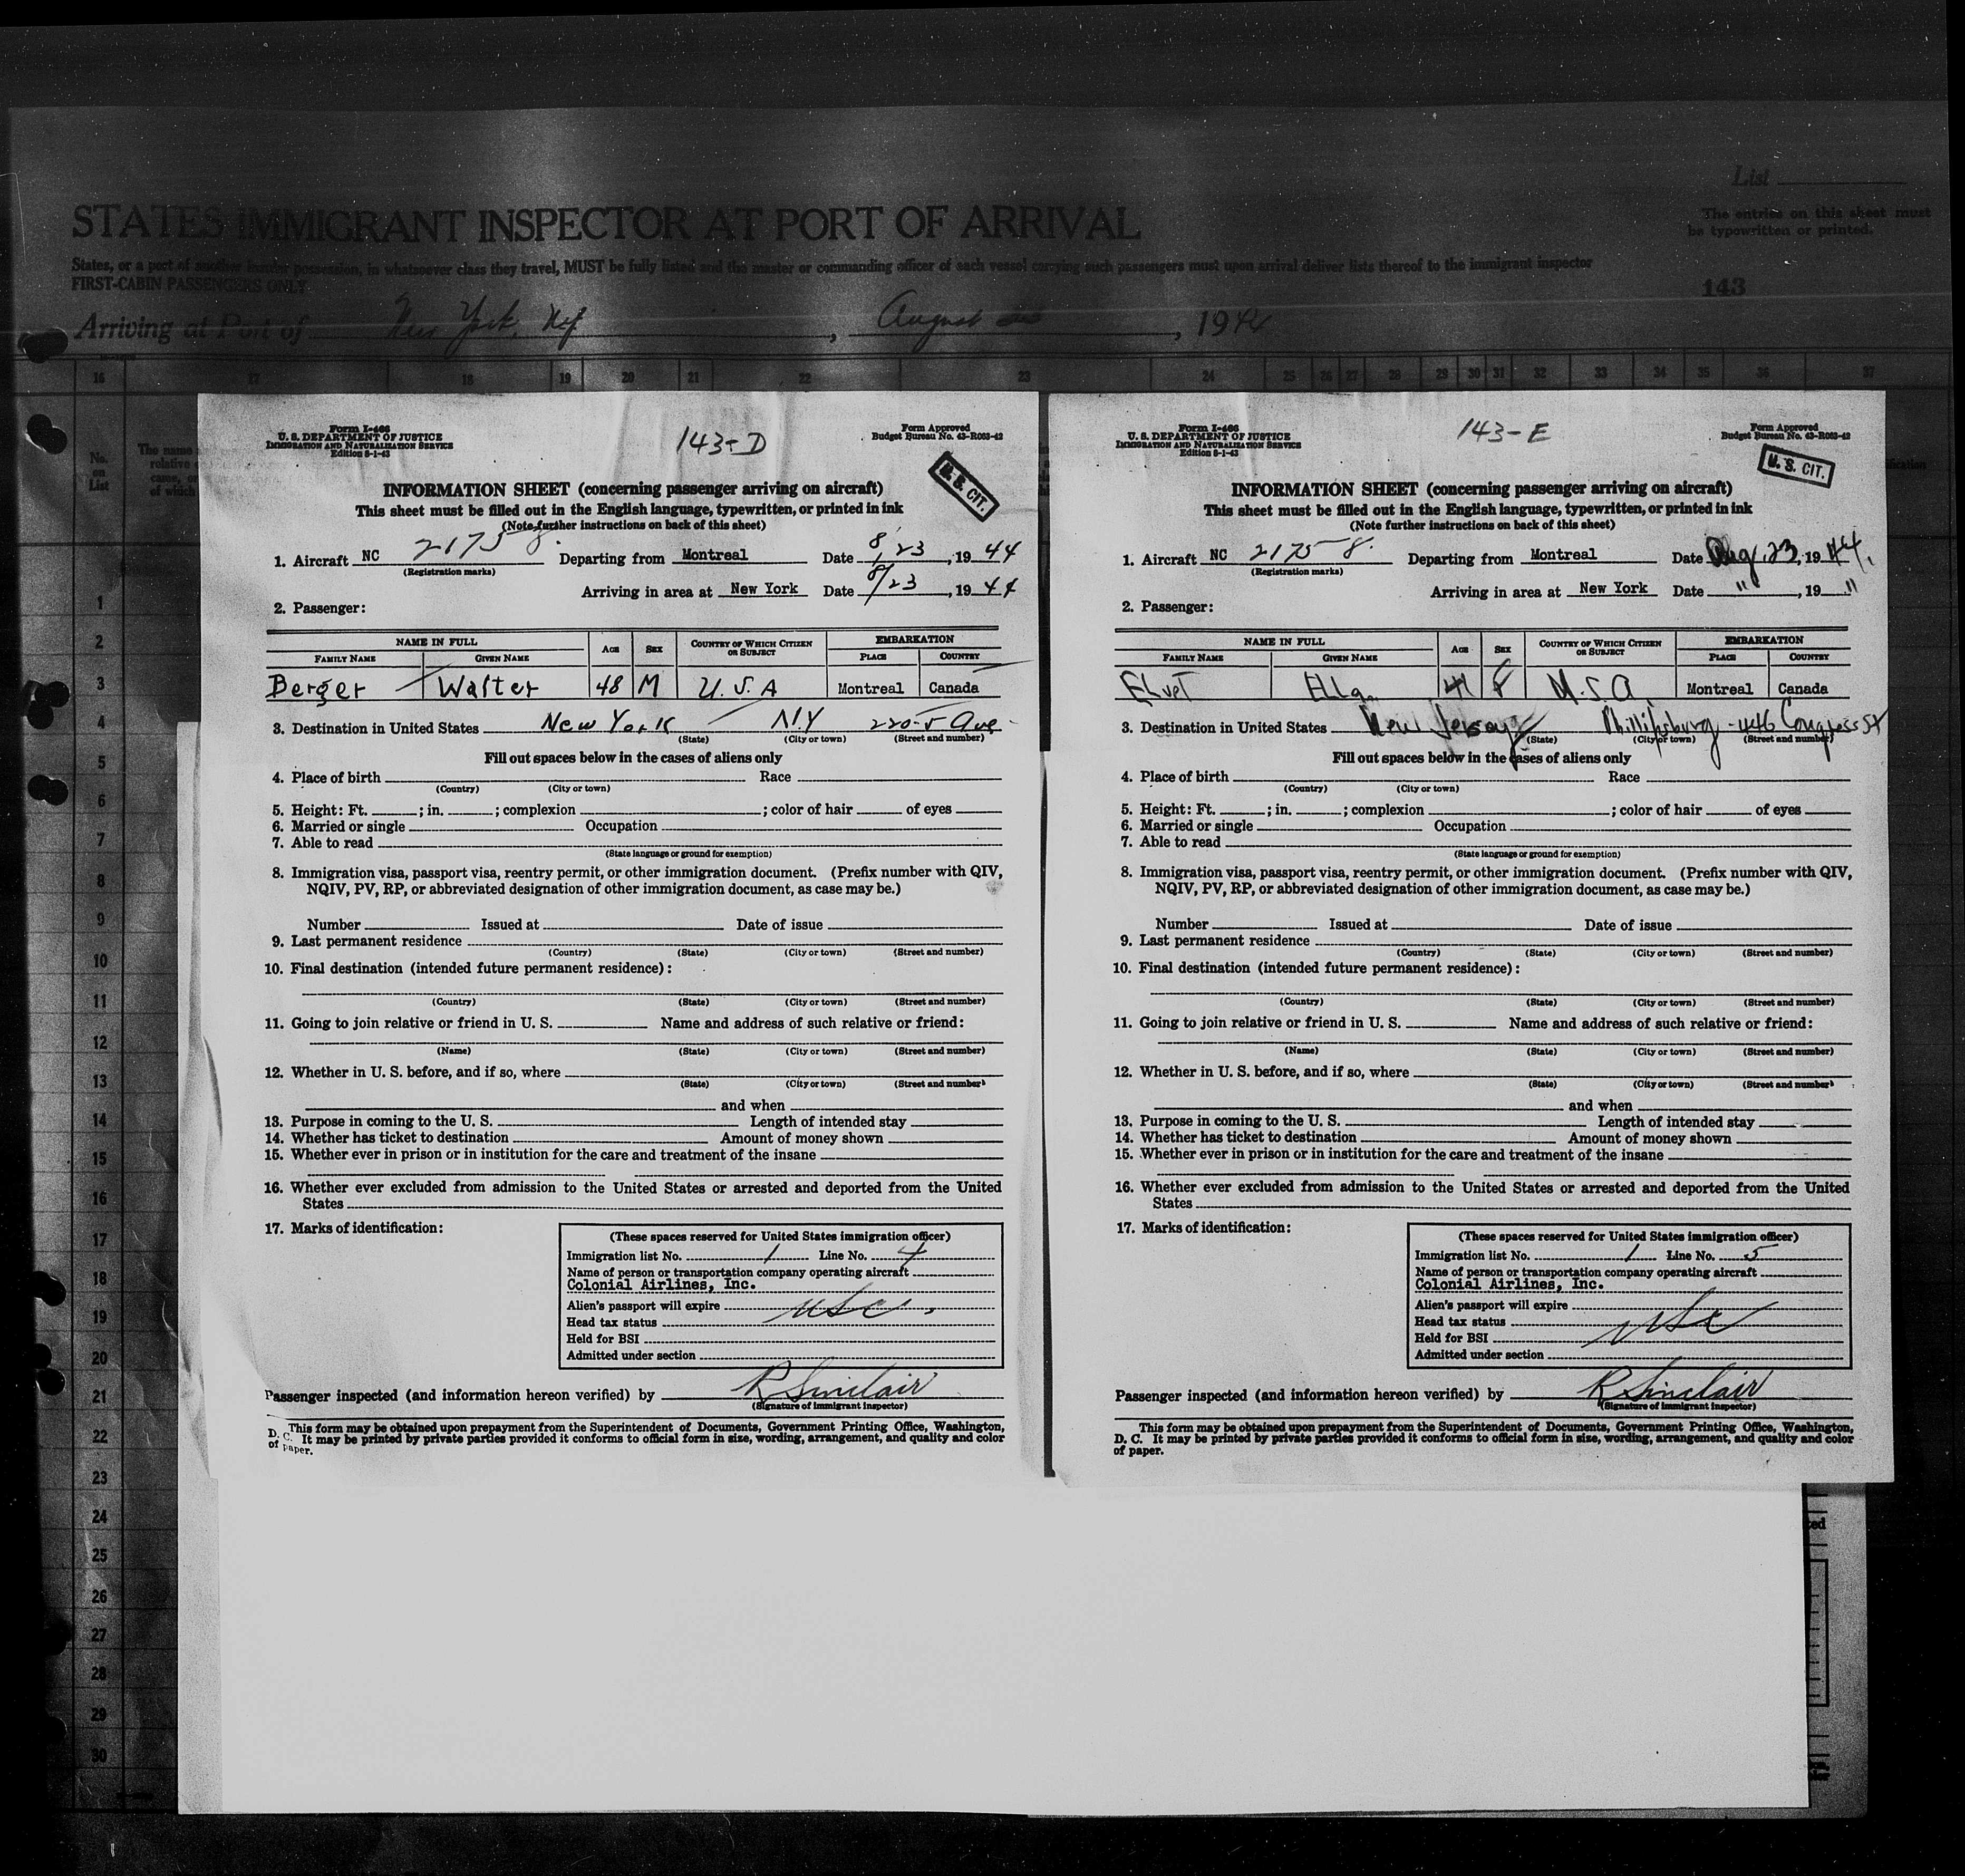 List
STATES IMMIGRANT INSPECTOR AT PORT OF ARRIVAL
The entries on this sheet must
be typewritten or printed.
States, or a port of another insular possession, in whatsoever class they travel, MUST be fully listed and the master or commanding officer of each vessel carrying such passengers must upon arrival deliver lists thereof to the immigrant inspector
FIRST-CABIN PASSENGERS ONLY
143
Arriving at Port of New York, NY, August, 194
16 17 18 19 20 21 22 23 24 25 26 27 28 29 30 31 32 33 34 35 36 37
No.
on
List
The name
relative
came, or
of which
1
2
3
4
5
6
7
8
9
10
11
12
13
14
15
16
17
18
19
20
21
22
23
24
25
26
27
28
29
30
Form I-466
U. S. DEPARTMENT OF JUSTICE
IMMIGRATION AND NATURALIZATION SERVICE
Edition 8-1-43
143-D
Form Approved
Budget Bureau No. 43-R063-42
U. S. CIT.
INFORMATION SHEET (concerning passenger arriving on aircraft)
This sheet must be filled out in the English language, typewritten, or printed in ink
(Note further instructions on back of this sheet)
1. Aircraft NC 21758. Departing from Montreal Date 8/23, 1944
(Registration marks)
Arriving in area at New York Date 8/23, 1944
2. Passenger:
NAME IN FULL AGE SEX COUNTRY OF WHICH CITIZEN OR SUBJECT EMBARKATION
FAMILY NAME GIVEN NAME PLACE COUNTRY
Berger Walter 48 M U.S.A Montreal Canada
3. Destination in United States New York N.Y 220-5 Ave.
(State) (City or town) (Street and number)
Fill out spaces below in the cases of aliens only
4. Place of birth Race
(Country) (City or town)
5. Height: Ft. ; in. ; complexion ; color of hair of eyes
6. Married or single Occupation
7. Able to read
(State language or ground for exemption)
8. Immigration visa, passport visa, reentry permit, or other immigration document. (Prefix number with QIV,
NQIV, PV, RP, or abbreviated designation of other immigration document, as case may be.)
Number Issued at Date of issue
9. Last permanent residence
(Country) (State) (City or town) (Street and number)
10. Final destination (intended future permanent residence):
(Country) (State) (City or town) (Street and number)
11. Going to join relative or friend in U. S. Name and address of such relative or friend:
(Name) (State) (City or town) (Street and number)
12. Whether in U. S. before, and if so, where
(State) (City or town) (Street and number)
and when
13. Purpose in coming to the U. S. Length of intended stay
14. Whether has ticket to destination Amount of money shown
15. Whether ever in prison or in institution for the care and treatment of the insane
16. Whether ever excluded from admission to the United States or arrested and deported from the United
States
17. Marks of identification:
(These spaces reserved for United States immigration officer)
Immigration list No. 1 Line No. 4
Name of person or transportation company operating aircraft
Colonial Airlines, Inc.
Alien's passport will expire
Head tax status USC
Held for BSI
Admitted under section
Passenger inspected (and information hereon verified) by R Sinclair
(Signature of immigrant inspector)
This form may be obtained upon prepayment from the Superintendent of Documents, Government Printing Office, Washington,
D. C. It may be printed by private parties provided it conforms to official form in size, wording, arrangement, and quality and color
of paper.
Form I-466
U. S. DEPARTMENT OF JUSTICE
IMMIGRATION AND NATURALIZATION SERVICE
Edition 8-1-43
143-E
Form Approved
Budget Bureau No. 43-R063-42
U. S. CIT.
INFORMATION SHEET (concerning passenger arriving on aircraft)
This sheet must be filled out in the English language, typewritten, or printed in ink
(Note further instructions on back of this sheet)
1. Aircraft NC 21758. Departing from Montreal Date Aug. 23, 1944.
(Registration marks)
Arriving in area at New York Date ", 19 "
2. Passenger:
NAME IN FULL AGE SEX COUNTRY OF WHICH CITIZEN OR SUBJECT EMBARKATION
FAMILY NAME GIVEN NAME PLACE COUNTRY
ELvet ELLa 41 F U.S.A Montreal Canada
3. Destination in United States New Jersey Phillipsburg -446 Congress St
(State) (City or town) (Street and number)
Fill out spaces below in the cases of aliens only
4. Place of birth Race
(Country) (City or town)
5. Height: Ft. ; in. ; complexion ; color of hair of eyes
6. Married or single Occupation
7. Able to read
(State language or ground for exemption)
8. Immigration visa, passport visa, reentry permit, or other immigration document. (Prefix number with QIV,
NQIV, PV, RP, or abbreviated designation of other immigration document, as case may be.)
Number Issued at Date of issue
9. Last permanent residence
(Country) (State) (City or town) (Street and number)
10. Final destination (intended future permanent residence):
(Country) (State) (City or town) (Street and number)
11. Going to join relative or friend in U. S. Name and address of such relative or friend:
(Name) (State) (City or town) (Street and number)
12. Whether in U. S. before, and if so, where
(State) (City or town) (Street and number)
and when
13. Purpose in coming to the U. S. Length of intended stay
14. Whether has ticket to destination Amount of money shown
15. Whether ever in prison or in institution for the care and treatment of the insane
16. Whether ever excluded from admission to the United States or arrested and deported from the United
States
17. Marks of identification:
(These spaces reserved for United States immigration officer)
Immigration list No. 1 Line No. 5
Name of person or transportation company operating aircraft
Colonial Airlines, Inc.
Alien's passport will expire
Head tax status USC
Held for BSI
Admitted under section
Passenger inspected (and information hereon verified) by R Sinclair
(Signature of immigrant inspector)
This form may be obtained upon prepayment from the Superintendent of Documents, Government Printing Office, Washington,
D. C. It may be printed by private parties provided it conforms to official form in size, wording, arrangement, and quality and color
of paper.